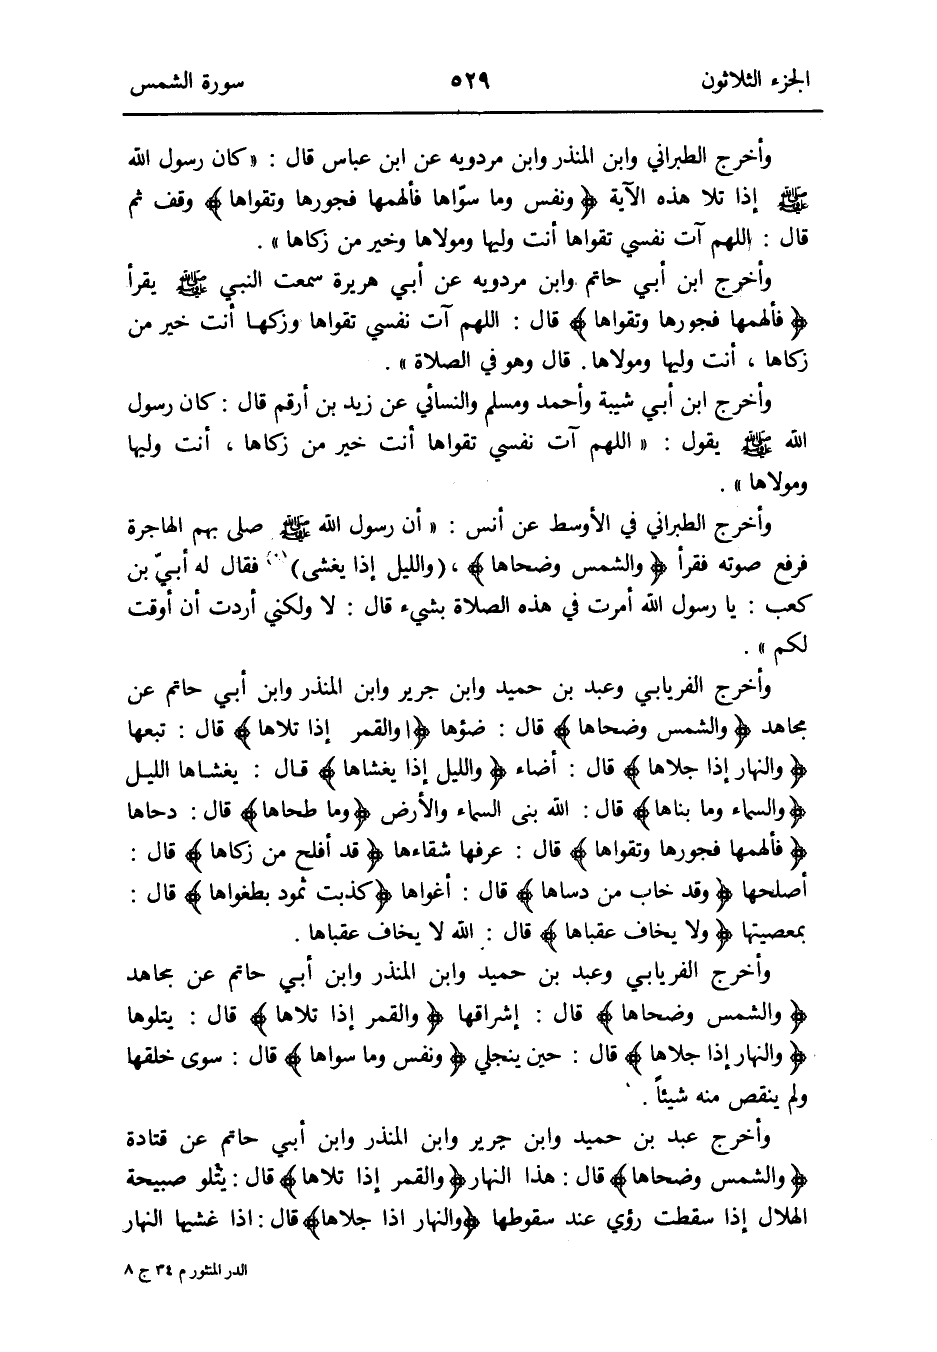 الجزء الثلاثون ٥٢٩ سورة الشمس
وأخرج الطبراني وابن المنذر وابن مردويه عن ابن عباس قال : « كان رسول الله
ﷺ إذا تلا هذه الآية ﴿ ونفس وما سوّاها فألهمها فجورها وتقواها ﴾ وقف ثم
قال : اللهم آت نفسي تقواها أنت وليها ومولاها وخير من زكاها » .
وأخرج ابن أبي حاتم وابن مردويه عن أبي هريرة سمعت النبي ﷺ يقرأ
﴿ فألهمها فجورها وتقواها ﴾ قال : اللهم آت نفسي تقواها وزكهـا أنت خير من
زكاها ، أنت وليها ومولاها . قال وهو في الصلاة » .
وأخرج ابن أبي شيبة وأحمد ومسلم والنسائي عن زيد بن أرقم قال : كان رسول
الله ﷺ يقول : « اللهم آت نفسي تقواها أنت خير من زكاها ، أنت وليها
ومولاها » .
وأخرج الطبراني في الأوسط عن أنس : « أن رسول الله ﷺ صلى بهم الهاجرة
فرفع صوته فقرأ ﴿ والشمس وضحاها ﴾ ، (والليل إذا يغشى) (١) فقال له أبيّ بن
كعب : يا رسول الله أمرت في هذه الصلاة بشيء قال : لا ولكني أردت أن أوقت
لكم » .
وأخرج الفريابي وعبد بن حميد وابن جرير وابن المنذر وابن أبي حاتم عن
مجاهد ﴿ والشمس وضحاها ﴾ قال : ضؤها ﴿ والقمر إذا تلاها ﴾ قال : تبعها
﴿ والنهار إذا جلاها ﴾ قال : أضاء ﴿ والليل إذا يغشاها ﴾ قـال : يغشـاها الليـل
﴿ والسماء وما بناها ﴾ قال : الله بنى السماء والأرض ﴿ وما طحاها ﴾ قال : دحاها
﴿ فألهمها فجورها وتقواها ﴾ قال : عرفها شقاءها ﴿ قد أفلح من زكاها ﴾ قال :
أصلحها ﴿ وقد خاب من دساها ﴾ قال : أغواها ﴿ كذبت ثمود بطغواها ﴾ قال :
بمعصيتها ﴿ ولا يخاف عقباها ﴾ قال : الله لا يخاف عقباها .
وأخرج الفريابي وعبد بن حميد وابن المنذر وابن أبي حاتم عن مجاهد
﴿ والشمس وضحاها ﴾ قال : إشراقها ﴿ والقمر إذا تلاها ﴾ قال : يتلوها
﴿ والنهار إذا جلاها ﴾ قال : حين ينجلي ﴿ ونفس وما سواها ﴾ قال : سوى خلقها
ولم ينقص منه شيئاً .
وأخرج عبد بن حميد وابن جرير وابن المنذر وابن أبي حاتم عن قتادة
﴿ والشمس وضحاها ﴾ قال : هذا النهار ﴿ والقمر إذا تلاها ﴾ قال : يتْلو صبيحة
الهلال إذا سقطت رؤي عند سقوطها ﴿ والنهار اذا جلاها ﴾ قال : اذا غشيها النهار
الدر المنثور م ٣٤ ج ٨